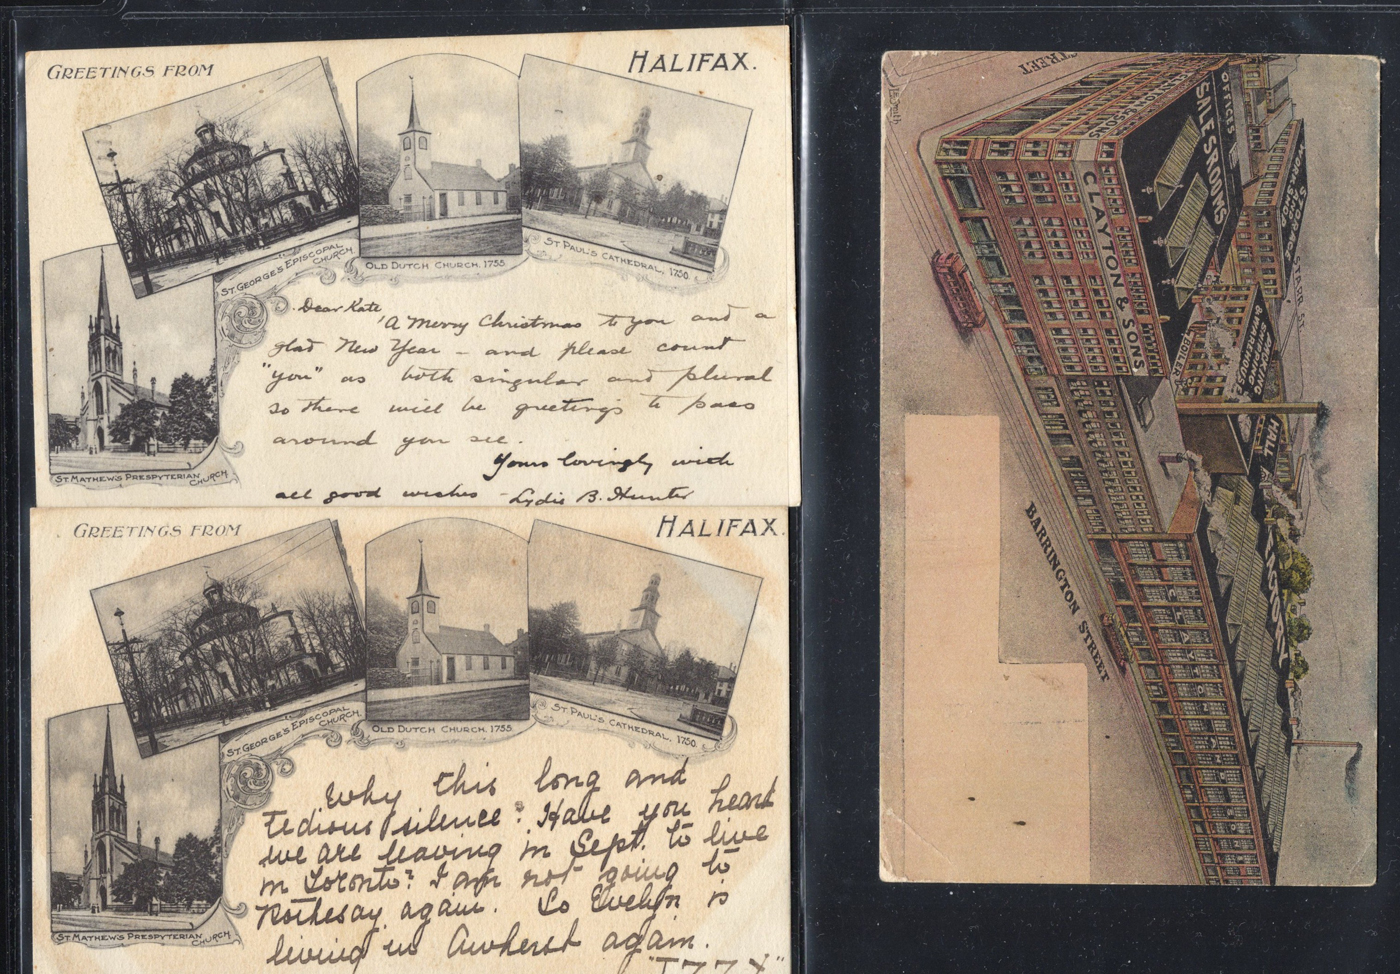 GREETINGS FROM
HALIFAX.
ST. GEORGE'S EPISCOPAL
CHURCH.
OLD DUTCH CHURCH, 1755.
ST PAUL'S CATHEDRAL, 1750.
ST. MATHEW'S PRESBYTERIAN CHURCH.
Dear Kate,
A Merry Christmas to you and a
glad New Year – and please count
"you" as both singular and plural
so there will be greetings to pass
around you see.
Yours lovingly with
all good wishes – Lydie B. Hunter
GREETINGS FROM
HALIFAX.
ST. GEORGE'S EPISCOPAL
CHURCH.
OLD DUTCH CHURCH, 1755.
ST. PAUL'S CATHEDRAL, 1750.
ST MATHEW'S PRESBYTERIAN CHURCH.
Why this long and
tedious silence? Have you heard
we are leaving in Sept. to live
in Toronto? I am not going to
Rothesay again. So Evelyn is
living in Amherst again.
STREET
OFFICES
SALESROOMS
CLAYTON & SONS
STORAGE
WORKSHOP
BOILER
&
HALL
BARRINGTON STREET